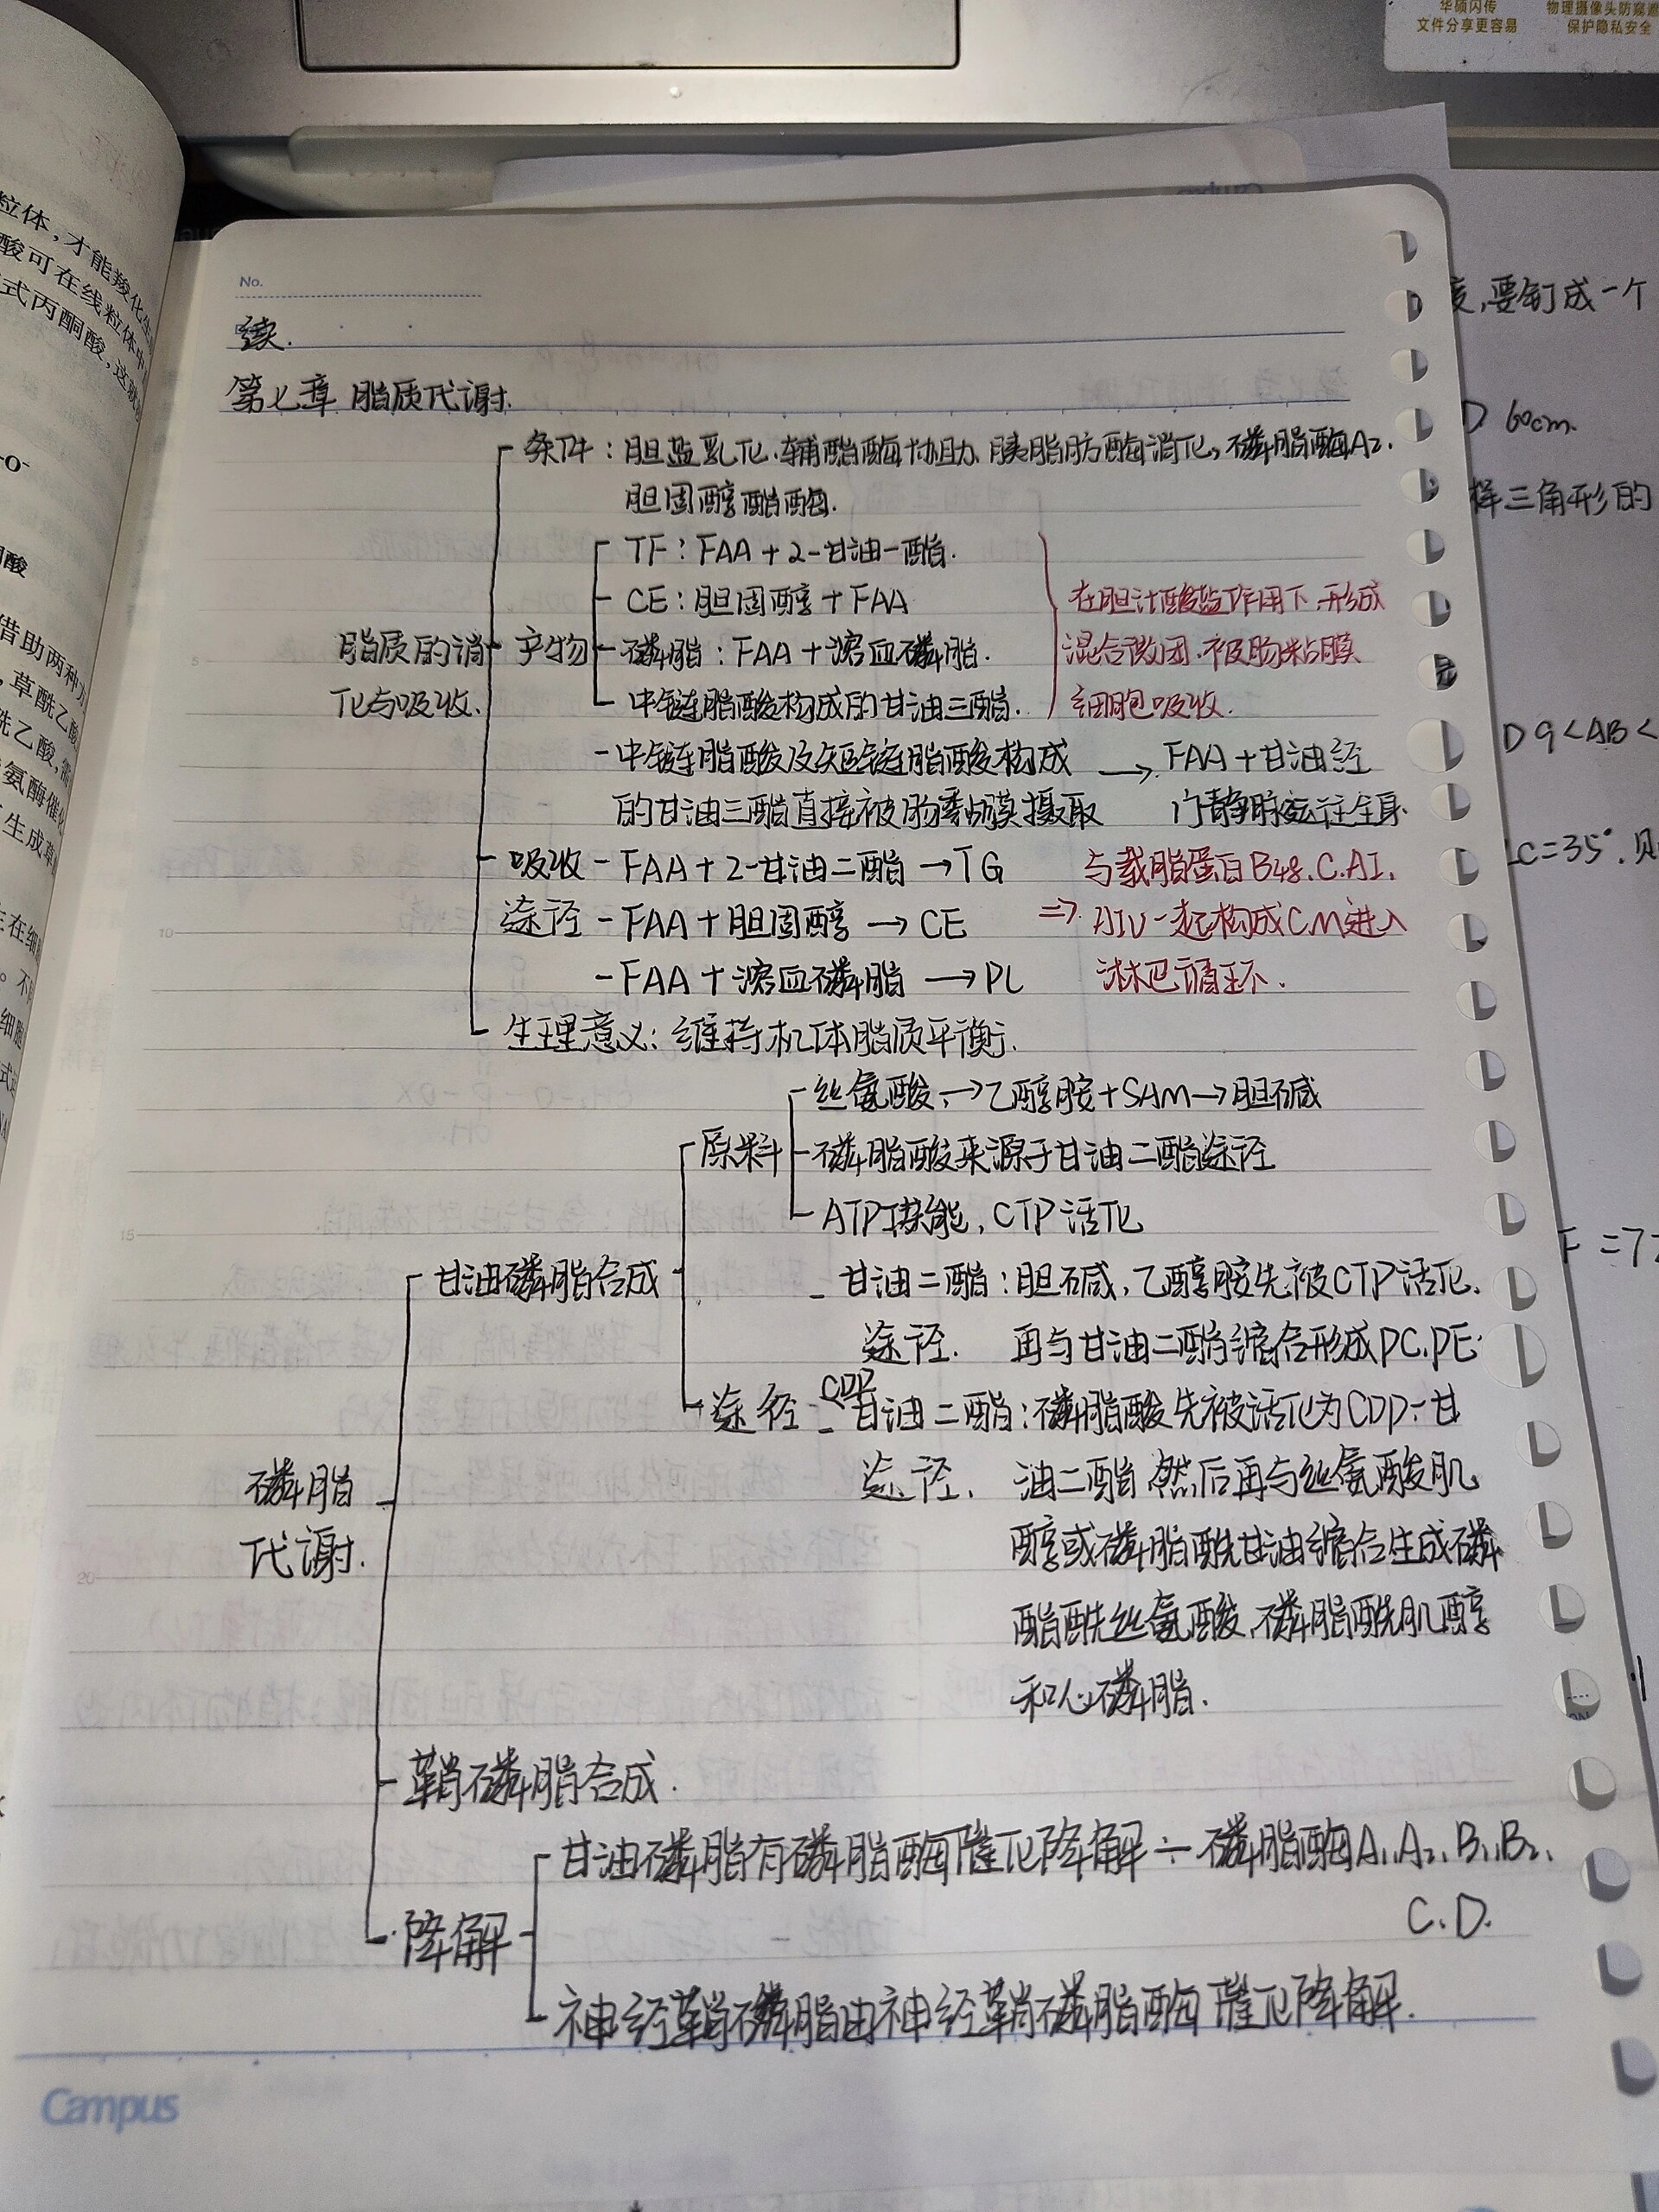 华硕闪传
文件分享更容易
物理摄像头防窥
保护隐私安全
粒体，才能羧化
酸可在线粒体中
式丙酮酸，这
酸
借助两种
，草酰乙酸
酰乙酸，需
氨酶催化
生成草
在细
。不
细胞
要钉成一个
D 60cm.
样三角形的
D 9<AB<
C=35°.
F=7
No.
续.
第七章 脂质代谢.
条件：胆盐乳化.辅酯酶协助.胰脂肪酶消化，磷脂酶A2.
胆固醇酯酶.
TF：FAA+2-甘油一酯.
CE：胆固醇+FAA
磷脂：FAA+溶血磷脂.
中链脂酸构成的甘油三酯.
在胆汁酸盐作用下.形成
混合微团.被肠粘膜
细胞吸收.
脂质的消
化与吸收.
产物
-中链脂酸及短链脂酸构成 → FAA+甘油经
的甘油三酯直接被肠黏膜摄取 门静脉运往全身.
吸收 -FAA+2-甘油二酯→TG 与载脂蛋白B48.C.AI.
途径 -FAA+胆固醇→CE ⇒ AIV一起构成CM进入
-FAA+溶血磷脂→PL 淋巴循环.
生理意义：维持机体脂质平衡.
丝氨酸→乙醇胺+SAM→胆碱
原料 磷脂酸来源于甘油二酯途径
ATP供能，CTP活化
甘油磷脂合成
- 甘油二酯：胆碱，乙醇胺先被CTP活化.
途径. 再与甘油二酯缩合形成PC.PE.
途径 - CDP甘油二酯：磷脂酸先被活化为CDP-甘
途径. 油二酯 然后再与丝氨酸肌
醇或磷脂酰甘油缩合生成磷
酯酰丝氨酸.磷脂酰肌醇
和心磷脂.
磷脂
代谢.
鞘磷脂合成.
甘油磷脂有磷脂酶催化降解÷磷脂酶A1.A2.B1.B2.
C.D.
降解
神经鞘磷脂由神经鞘磷脂酶催化降解.
Campus